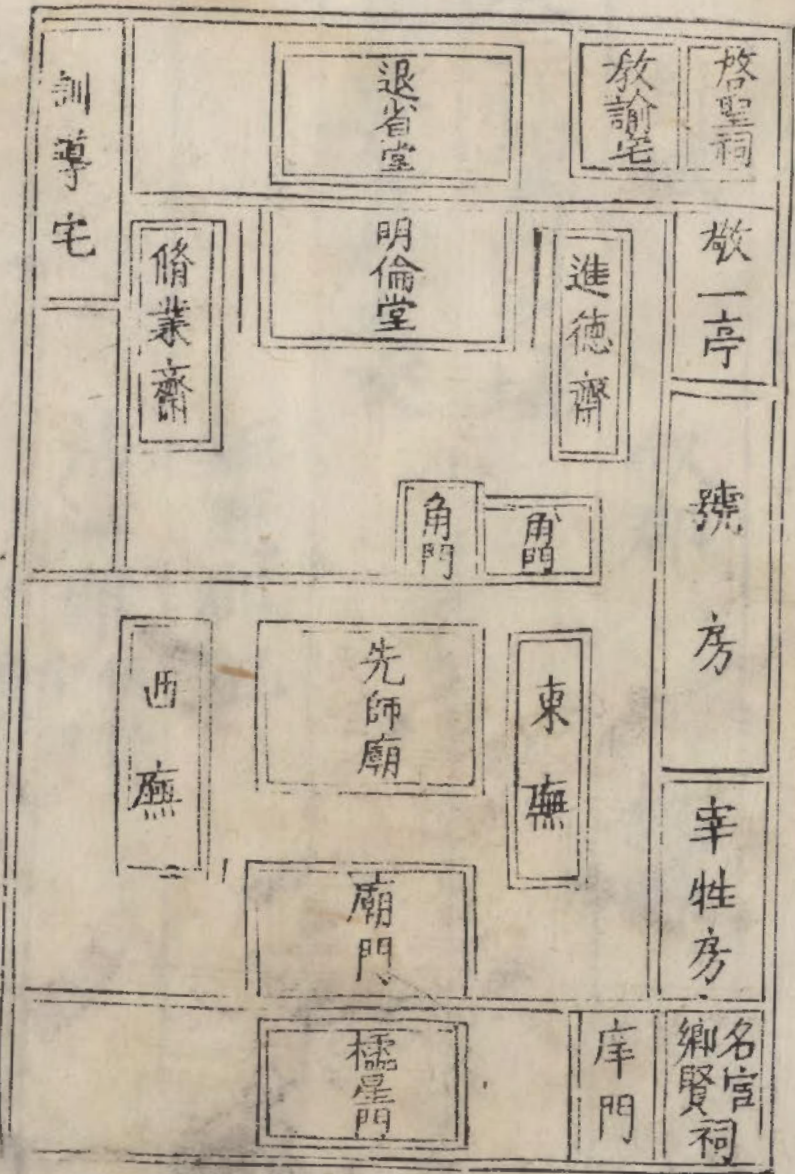 啓聖祠
教諭宅
退省堂
訓導宅
敬一亭
進德齋
明倫堂
脩業齋
號房
角門
角門
東廡
先師廟
西廡
宰牲房
廟門
名宦鄉賢祠
庠門
欞星門